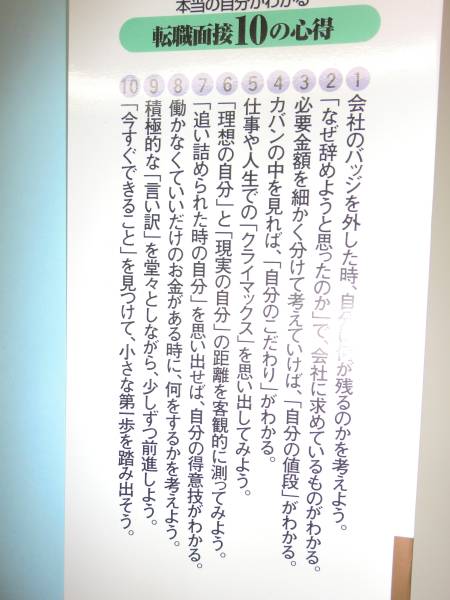 本当の自分がわかる
転職面接10の心得
1 会社のバッジを外した時、自分に何が残るのかを考えよう。
2 「なぜ辞めようと思ったのか」で、会社に求めているものがわかる。
3 必要金額を細かく分けて考えていけば、「自分の値段」がわかる。
4 カバンの中を見れば、「自分のこだわり」がわかる。
5 仕事や人生での「クライマックス」を思い出してみよう。
6 「理想の自分」と「現実の自分」の距離を客観的に測ってみよう。
7 「追い詰められた時の自分」を思い出せば、自分の得意技がわかる。
8 働かなくていいだけのお金がある時に、何をするかを考えよう。
9 積極的な「言い訳」を堂々としながら、少しずつ前進しよう。
10 「今すぐできること」を見つけて、小さな第一歩を踏み出そう。